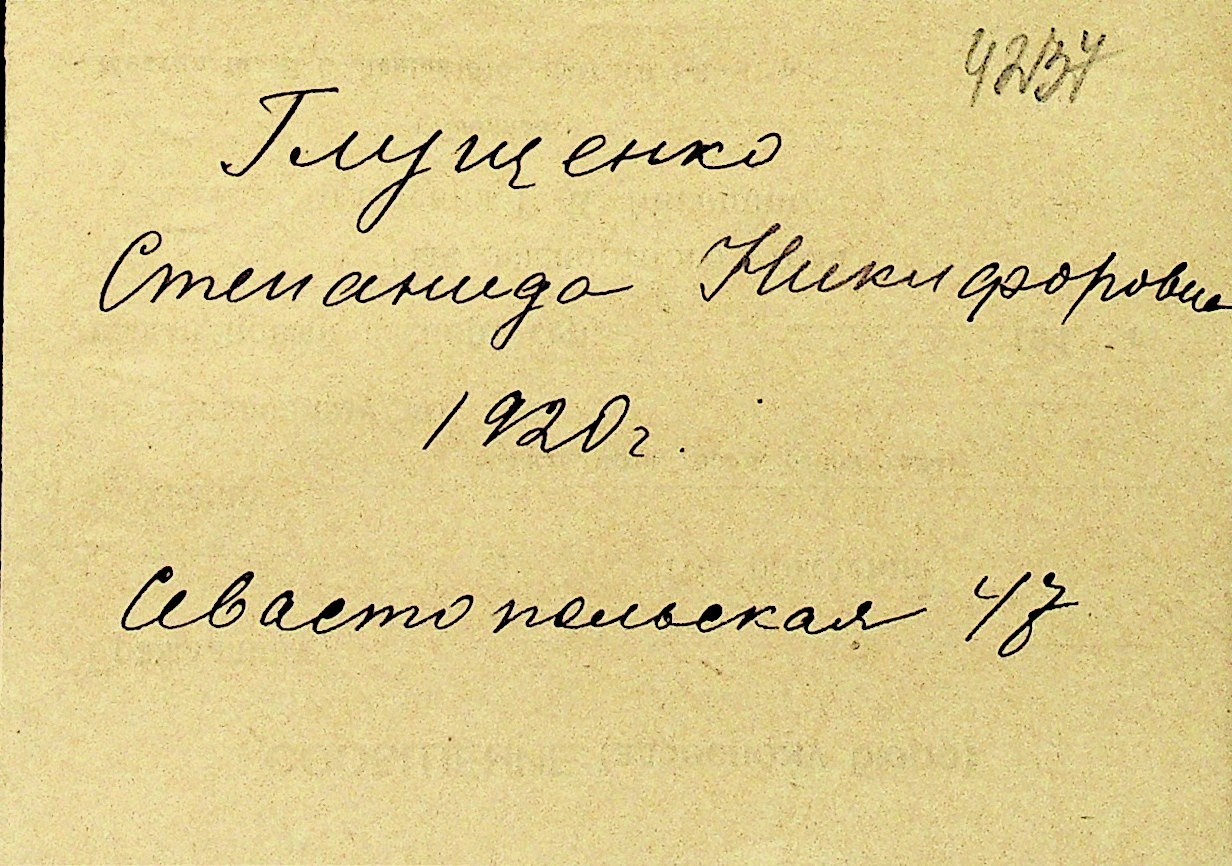 4237
Глущенко
Степанида Никифоровна
1920г.
Севастопольская 47